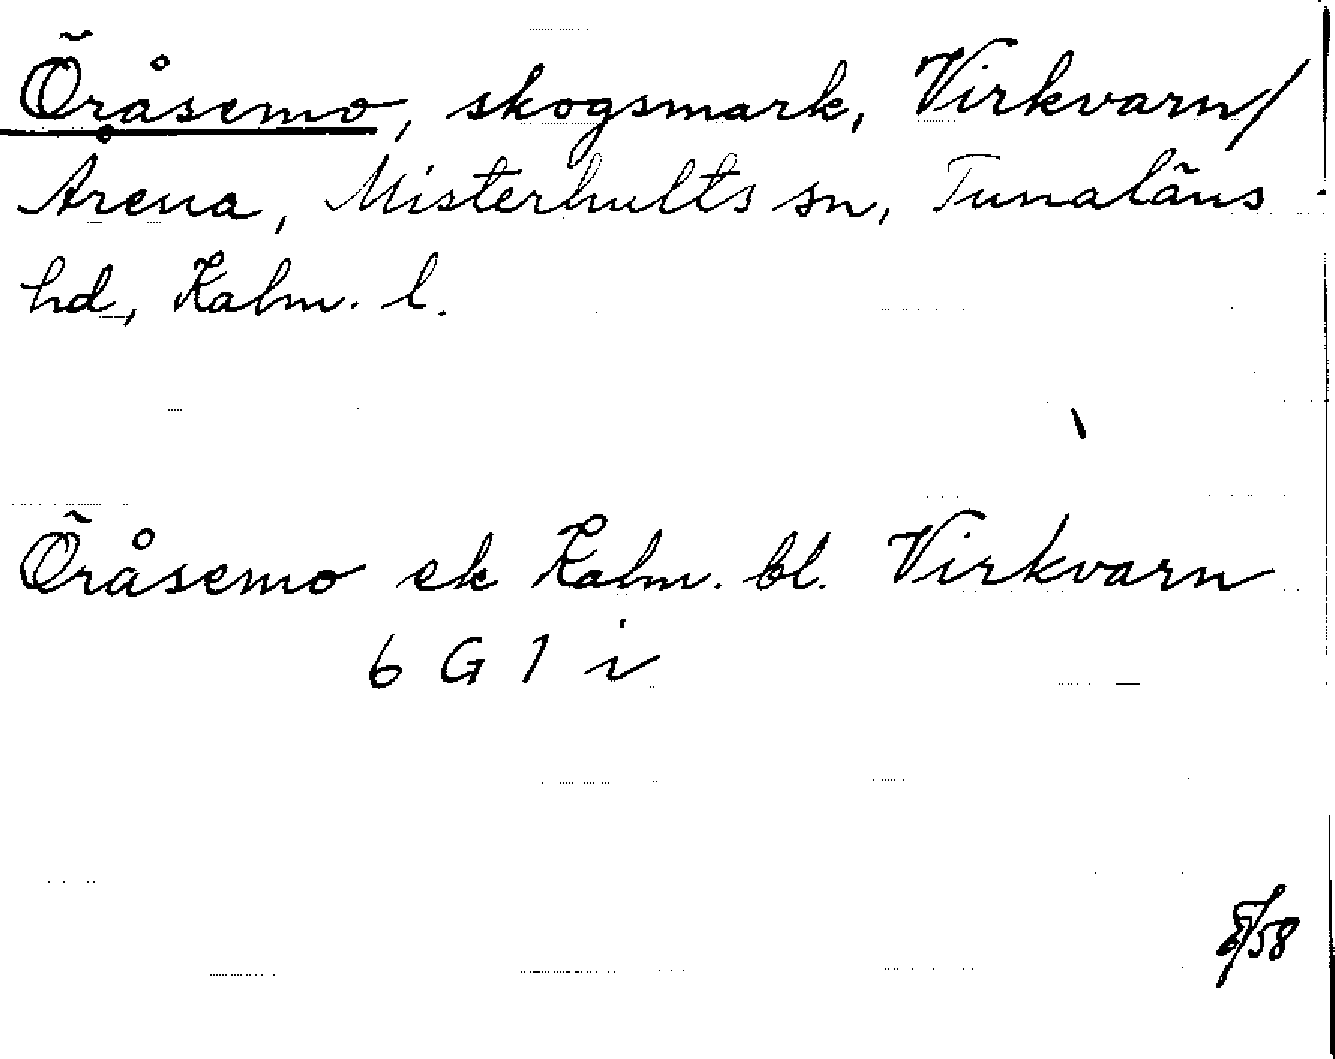 Öråsemo, skogsmark, Virkvarn/
Årena, Misterhults sn, Tunaläns
hd, Kalm. l.
Öråsemo ek Kalm. bl. Virkvarn
6 G 1 i